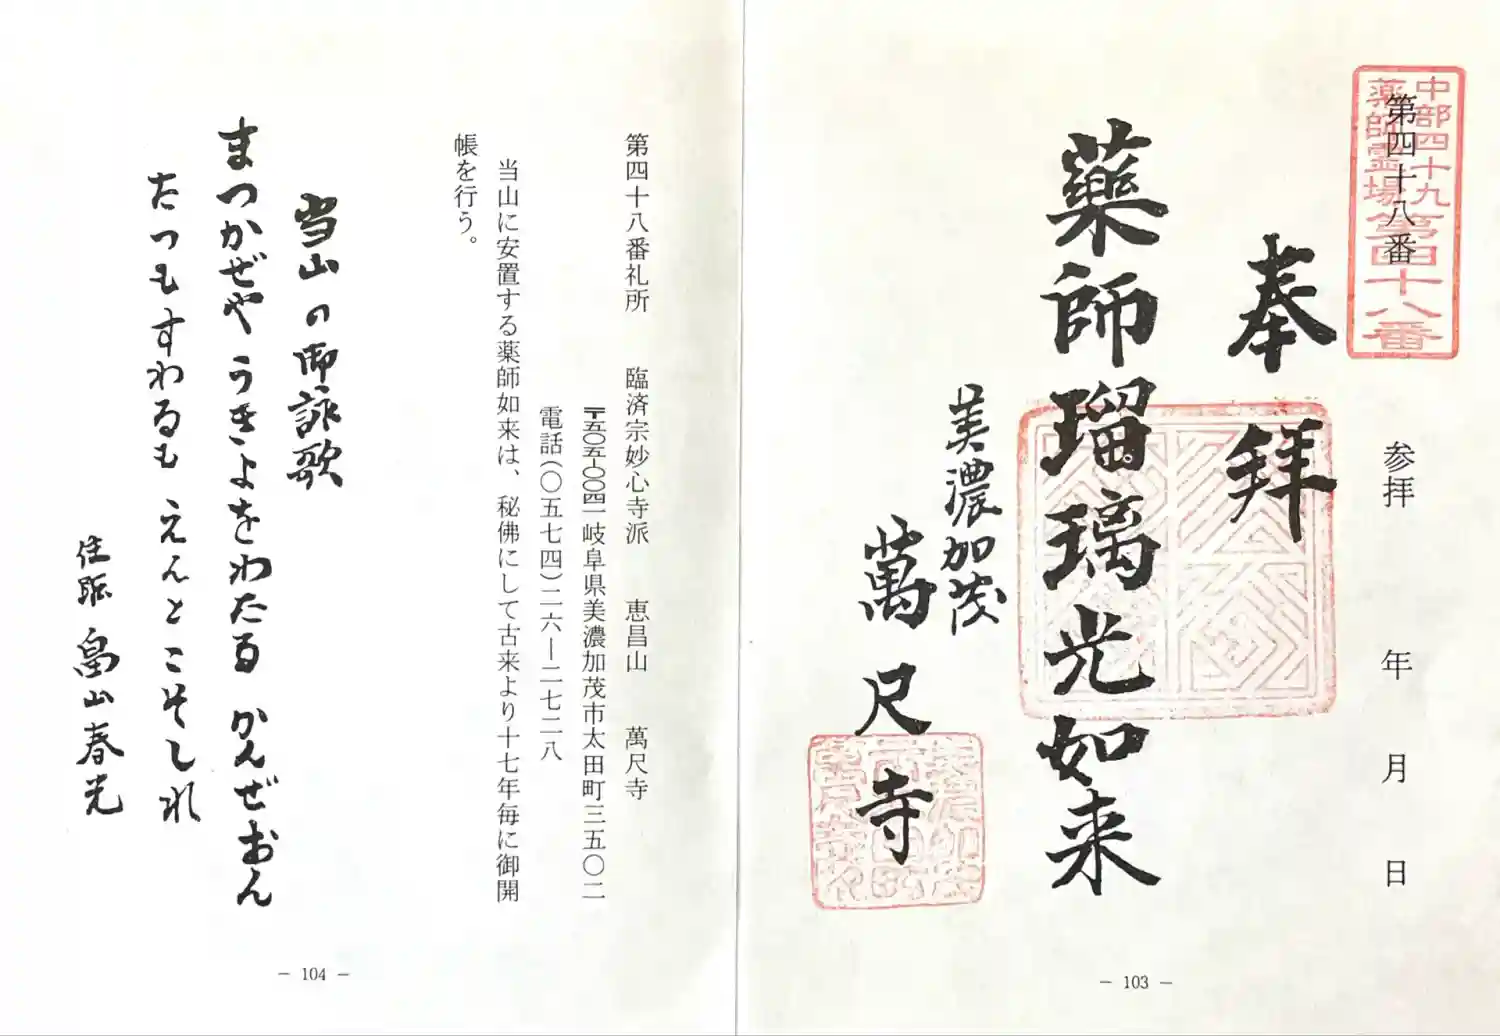 中部四十九
薬師霊場
第四十八番
第四十八番
参拝　年　月　日
奉拝
藥師瑠璃光如来
美濃加茂
萬尺寺
－ 103 －
第四十八番礼所　臨済宗妙心寺派　恵昌山　萬尺寺
〒五〇五-〇〇四一岐阜県美濃加茂市太田町三五〇二
電話(〇五七四)二六ー二七二八
当山に安置する薬師如来は、秘佛にして古来より十七年毎に御開
帳を行う。
当山の御詠歌
まつかぜや うきよをわたる かんぜおん
たつもすわるも えんとこそしれ
住職 畠山春光
－ 104 －